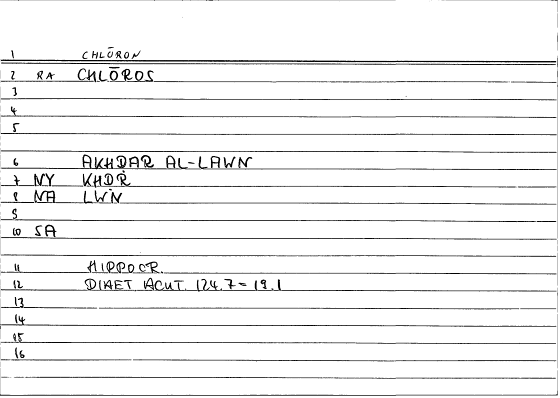 1 CHLŌRON
2 RA CHLŌROS
3
4
5
6 AKHDAR AL-LAWN
7 NY KHḌR
8 NA LWN
9
10 SA
11 HIPPOCR.
12 DIAET ACUT. 124.7 = 19.1
13
14
15
16